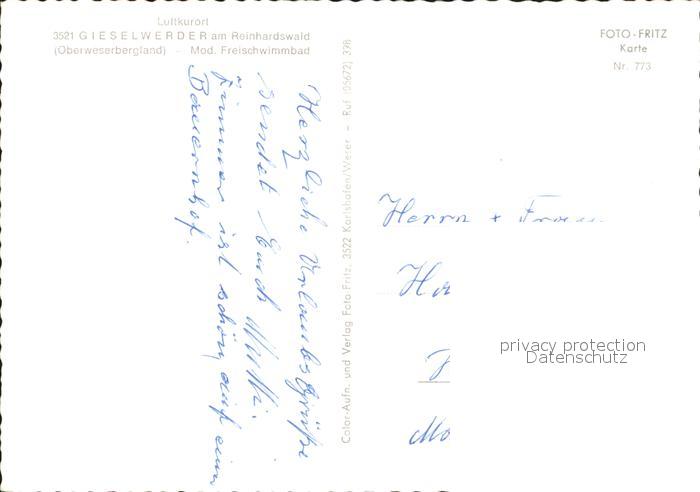 Luftkurort
3521 GIESELWERDER am Reinhardswald
(Oberweserbergland) - Mod. Freischwimmbad
Herzliche Urlaubsgrüße
sendet Euch
Zimmer ist schön, auf ein
Bauernhof.
Color-Aufn. und Verlag Foto Fritz, 3522 Karlshafen/Weser - Ruf (05672) 398
FOTO-FRITZ
Karte
Nr. 773
Herrn + Frau
privacy protection
Datenschutz